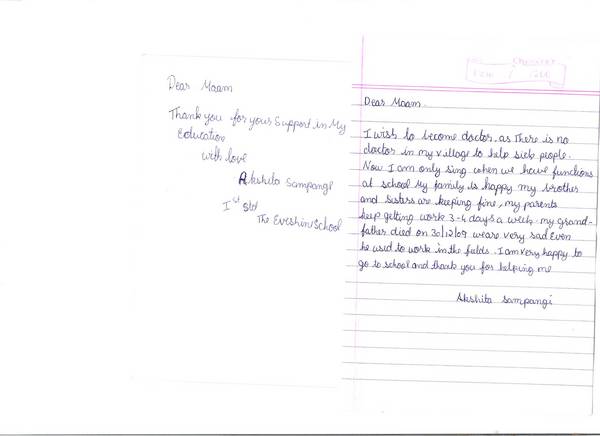 Dear Maam
Thank you for your Support in My
Education
with love
Akshita Sampangi
I st std
The Evershine School
Dear Maam.
I wish to become doctor, as There is no
doctor in my village to help sick people.
Now I am only sing when we have functions
at school My family is happy my brother
and Sisters are keeping fine, my parents
keep getting work 3-4 days a week. my grand-
father died on 30/12/09 we are very sad Even
he used to work in the fields. I am very happy to
go to school and thank you for helping me
Akshita Sampangi